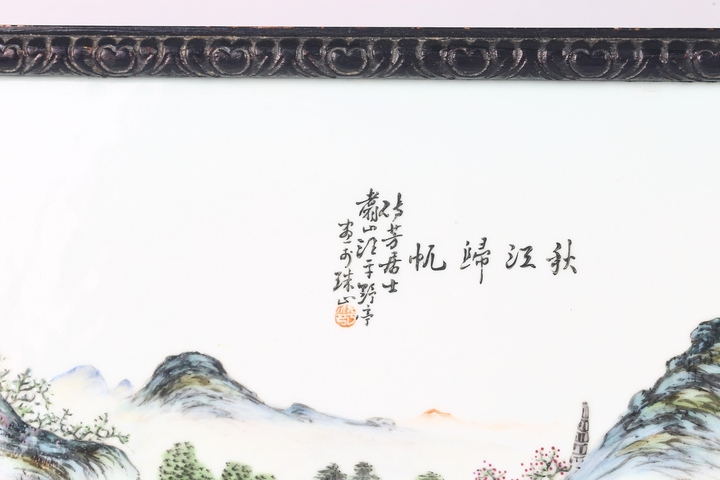 秋江歸帆
詩芳居士
肅山汪平野亭
畫於珠山